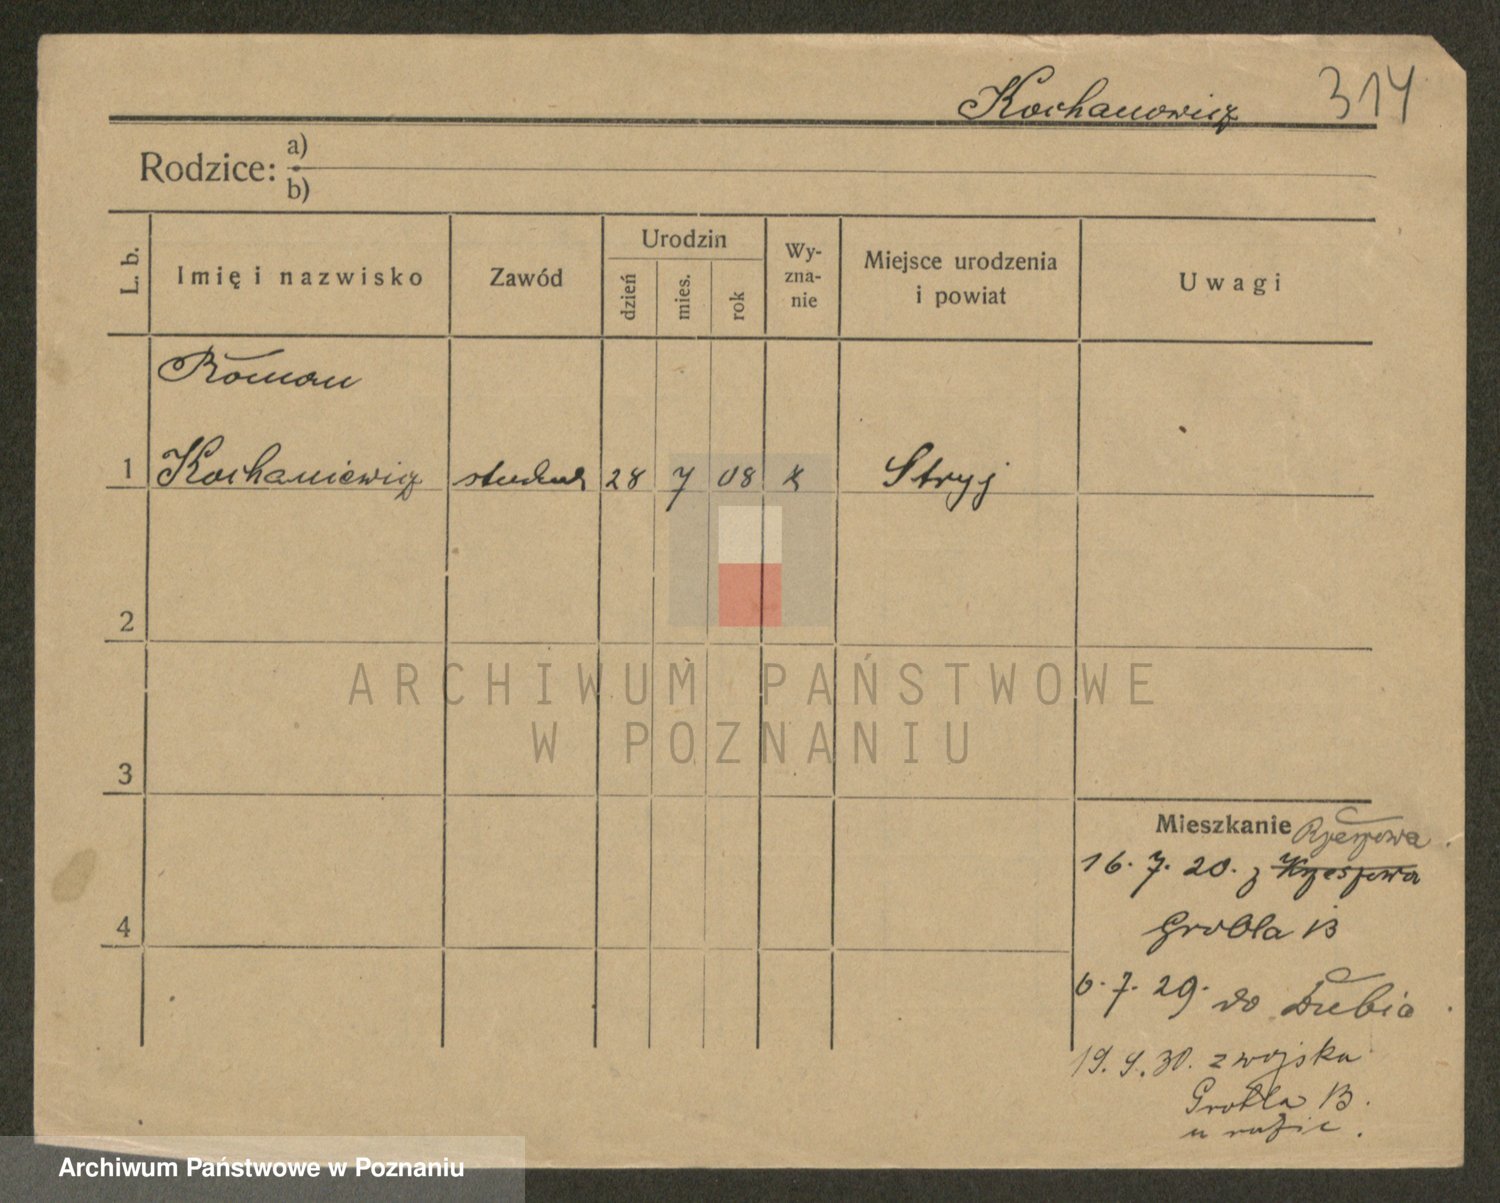 Kochanowicz 314
Rodzice: a)
b)
L. b. Imię i nazwisko Zawód Urodzin dzień mies. rok Wy-zna-nie Miejsce urodzenia i powiat Uwagi
Roman
1 Kochaniewicz student 28 7 08 k Stryj
2
3
4
Mieszkanie Rzeszowa
16. 7. 20. z
Grobla 13
6. 7. 29. do Dubia
19. 9. 30. z wojska
Grobla 13.
ARCHIWUM PAŃSTWOWE
W POZNANIU
Archiwum Państwowe w Poznaniu